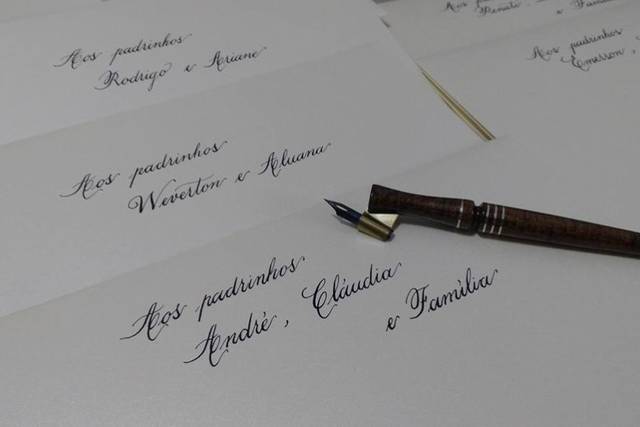 Aos padrinhos
Rodrigo e Ariane
Aos padrinhos
Weverton e Aluana
Aos padrinhos
André, Cláudia
e Família
Aos padrinhos
Emerson,
Aos padrinhos
e Família